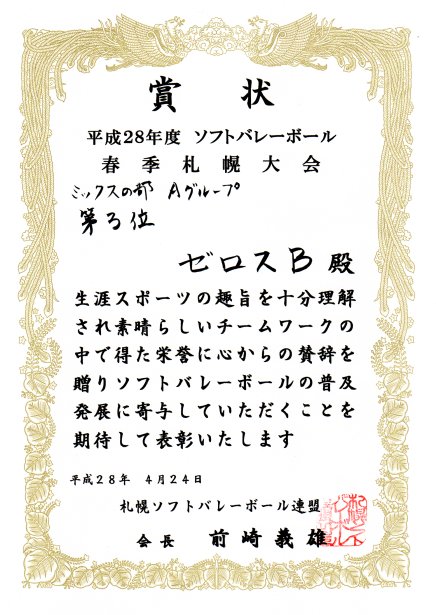 賞状
平成28年度 ソフトバレーボール
春季札幌大会
ミックスの部 Aグループ
第3位
ゼロスB 殿
生涯スポーツの趣旨を十分理解
され素晴らしいチームワークの
中で得た栄誉に心からの賛辞を
贈りソフトバレーボールの普及
発展に寄与していただくことを
期待して表彰いたします
平成28年 4月24日
札幌ソフトバレーボール連盟
会長 前崎義雄